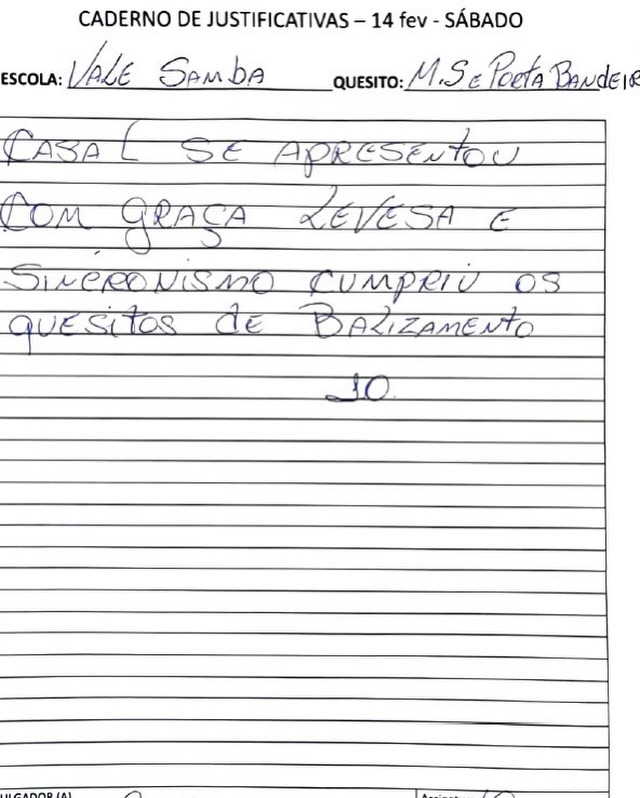 CADERNO DE JUSTIFICATIVAS – 14 fev - SÁBADO
ESCOLA: VALE SAMBA QUESITO: M.S e PORTA BANDEIR
CASAL SE APRESENTOU
COM GRAÇA LEVESA E
SINCRONISMO CUMPRIU OS
QUESITOS DE BALIZAMENTO
10